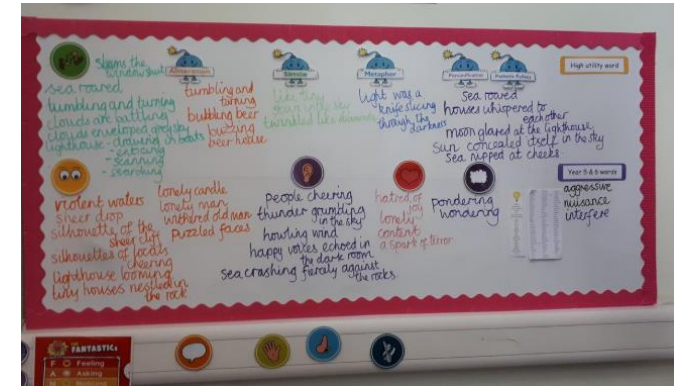 slams the
window shut
sea roared
tumbling and turning
clouds are battling
clouds enveloped grey sky
lighthouse - drawing in boats
- enticing
- scanning
- searching
Alliteration
tumbling and
turning
bubbling beer
buzzing
beer house
Simile
like tiny
in the sky
twinkled like diamonds
Metaphor
light was a
knife slicing
through the
darkness
Personification
Pathetic Fallacy
Sea roared
houses whispered to
each other
moon glared at the lighthouse
sun concealed itself in the sky
Sea nipped at cheeks
High utility word
violent waters
sheer drop
silhouette of the
sheer cliff
silhouettes of locals
cheering
lighthouse looming
tiny houses nestled in
the rock
lonely candle
lonely man
withered old man
puzzled faces
people cheering
thunder grumbling
in the sky
howling wind
happy voices echoed in
the dark room
sea crashing against
the rocks
hatred of
joy
lonely
content
a spark of terror
pondering
wondering
Year 5 & 6 words
aggressive
nuisance
interfere
FANTASTICs
F Feeling
A Asking